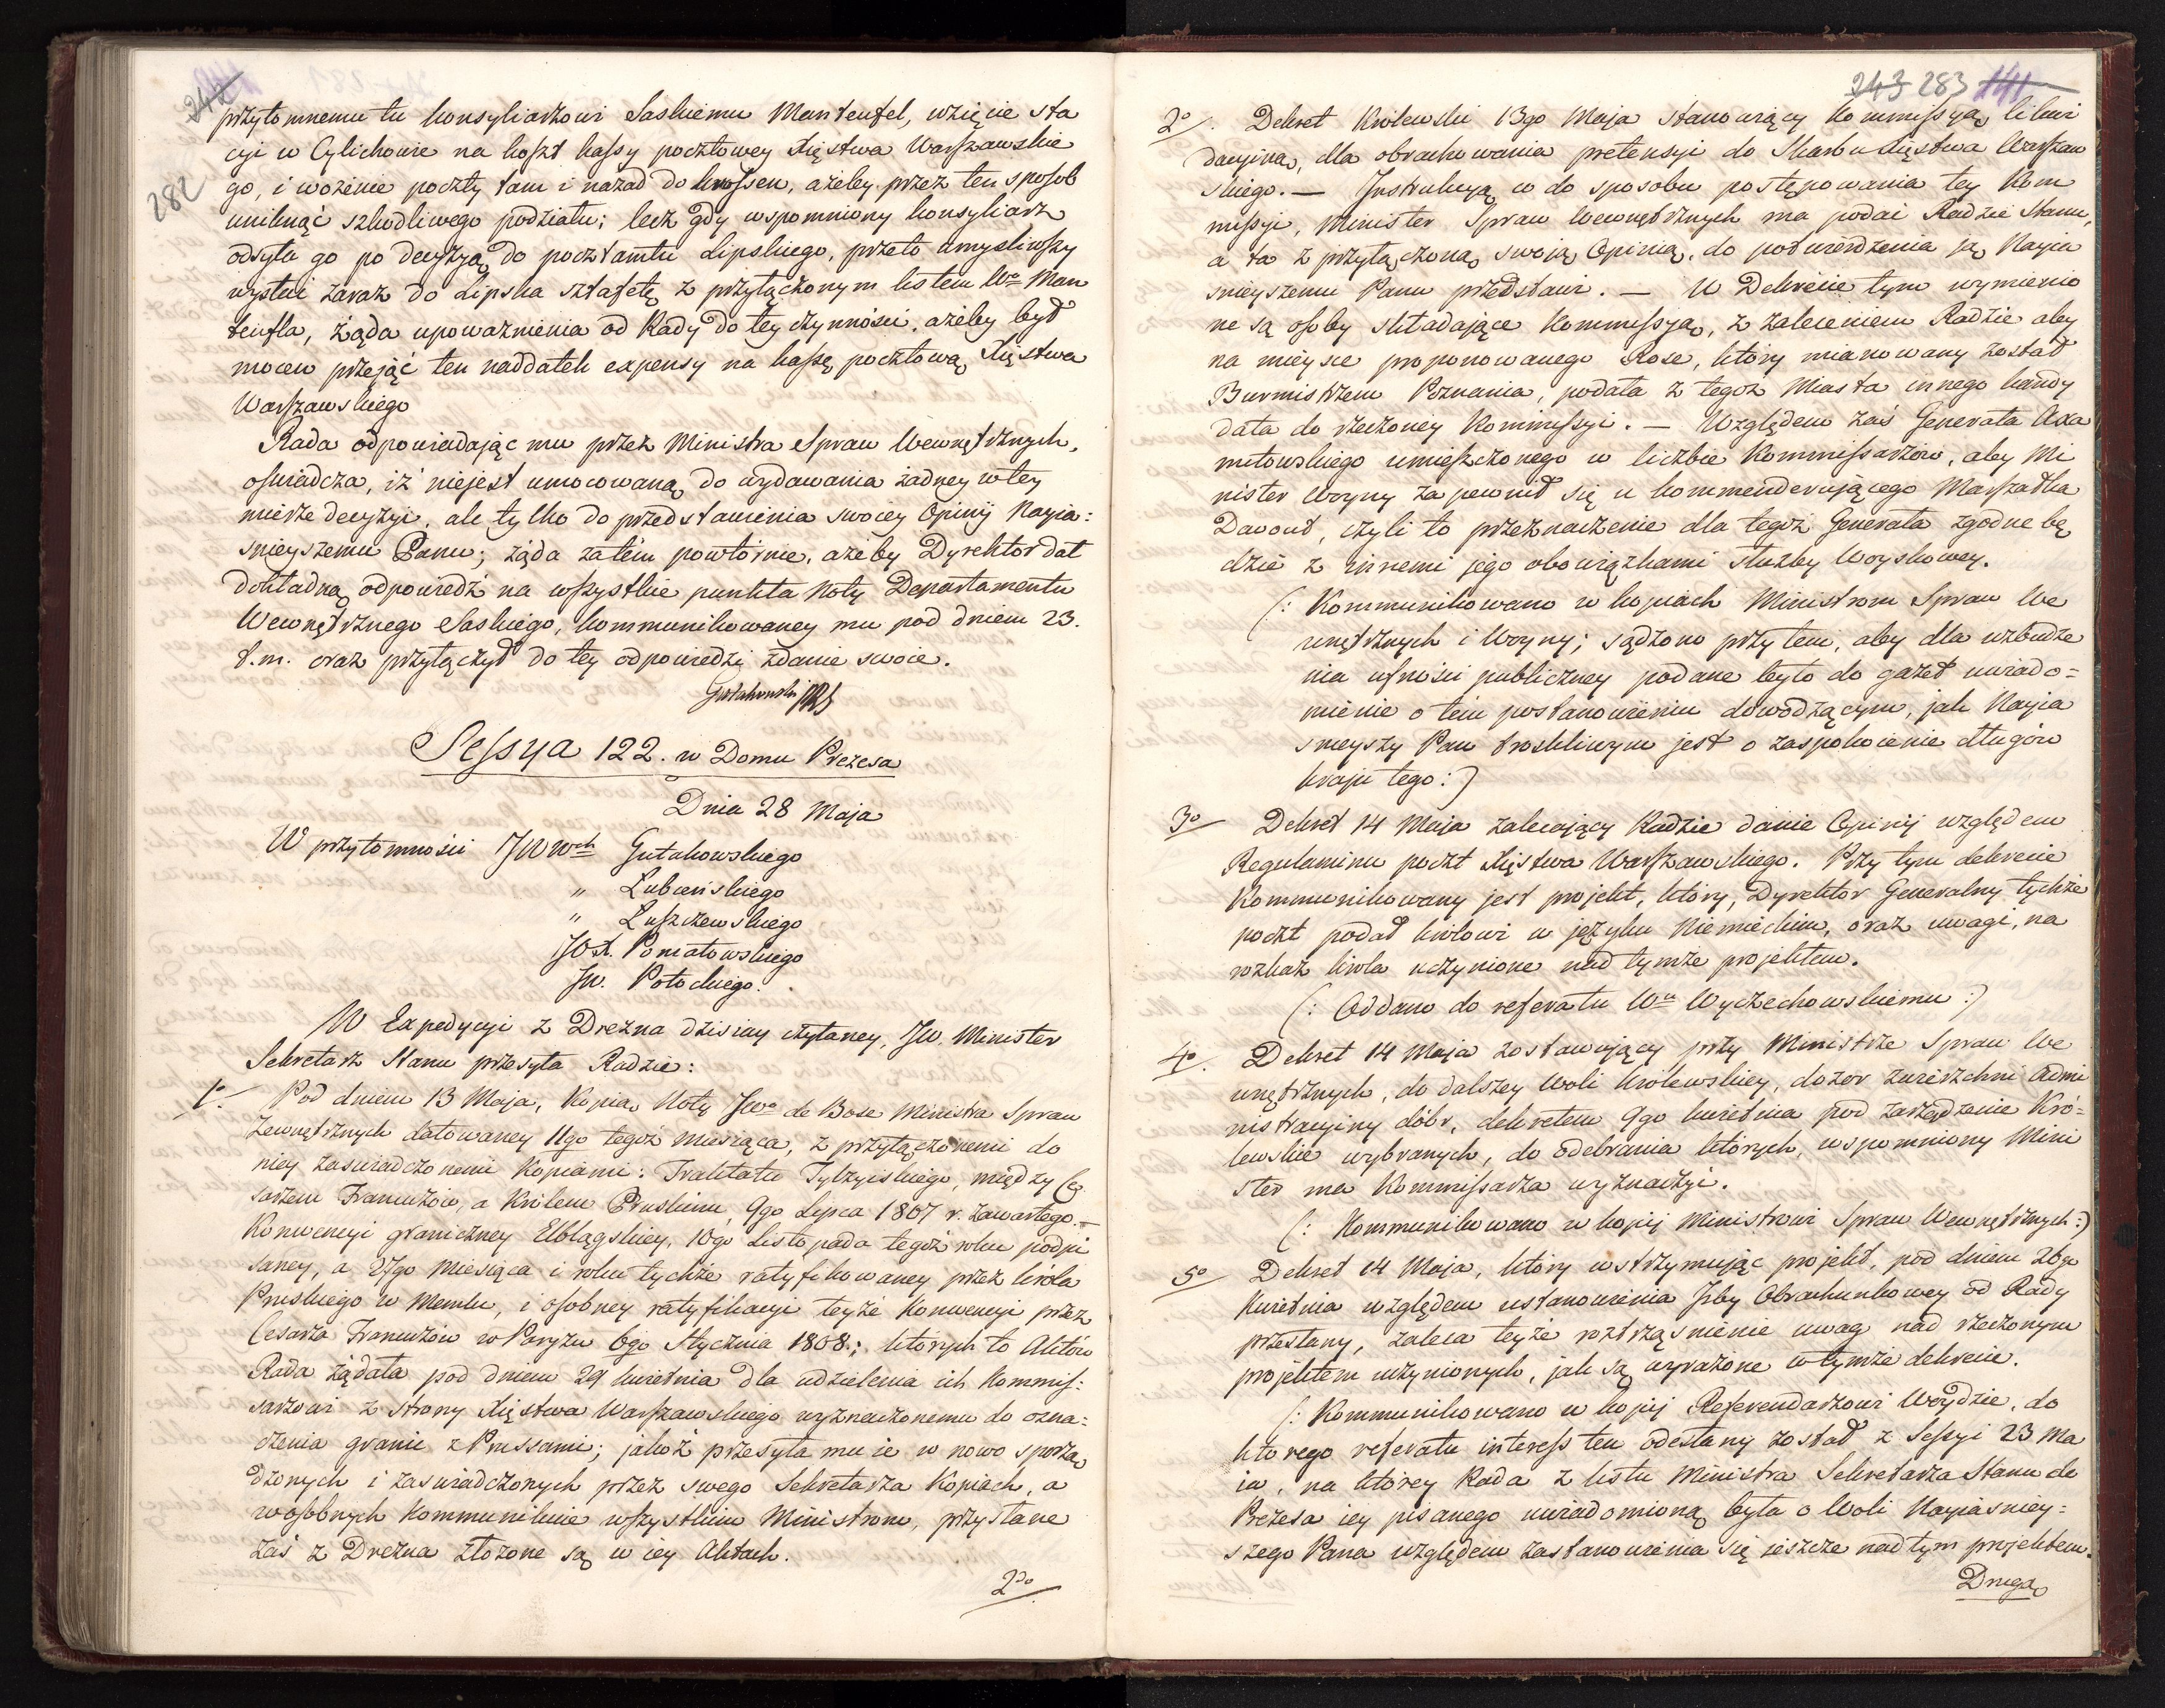 242
282
przytomnemu tu konsyliarzowi Saskiemu Manteufel, wzięcie sta
cyi w Cylichowie na koszt kassy pocztowey Xięstwa Warszawskie
go, i wożenie poczty tam i nazad do Krossen, ażeby przez ten sposob
uniknąć szkodliwego podziału; lecz gdy wspomniony konsyliarz
odsyła go po decyzyą do pocztamtu Lipskiego, przeto umyśliwszy
wysłać zaraz do Lipska sztafetę z przyłączonym listem Wo Man
teufla, żąda upoważnienia od Rady do tey czynności, ażeby był
mocen przejąć ten naddatek expensy na kassę pocztową Xięstwa
Warszawskiego
Rada odpowiadając mu przez Ministra Spraw Wewnętrznych,
oświadcza, iż niejest umocowaną do wydawania żadney w tey
mierze decyzyi, ale tylko do przedstawienia swoiey Opinij Nayia:
śnieyszemu Panu; żąda zatém powtórnie, ażeby Dyrektor dał
dokładną odpowiedź na wszystkie punkta Noty Departamentu
Wewnętrznego Saskiego, kommunikowaney mu pod dniem 23.
t. m. oraz przyłączył do tey odpowiedzi zdanie swoie.
Gutakowski
Sessya 122. w Domu Prezesa
Dnia 28 Maja
W przytomności JWWch Gutakowskiego
" Łubieńskiego
" Łuszczewskiego
JOX. Poniatowskiego
JW. Potockiego.
W Expedycyi z Drezna dzisiay czytaney, JW. Minister
Sekretarz Stanu przesyła Radzie:
1o. Pod dniem 13 Maja, Kopią Noty JWo de Bose Ministra Spraw
Zewnętrznych datowaney 11go tegoż miesiąca, z przyłączonemi do
niey zaświadczonemi Kopiami: Traktatu Tylzyiskiego, między Ce
sarzem Francuzów, a Królem Pruskim, 9go Lipca 1807 r. zawartego. –
Konwencyi graniczney Elblągskiey, 10go Listopada tegoż roku podpi
saney, a 27go Miesiąca i roku tychże ratyfikowaney przez króla
Pruskiego w Memlu, i osobney ratyfikacyi teyże Konwencyi przez
Cesarza Francuzów w Paryżu 6go Stycznia 1808.; których to Aktów
Rada żądała pod dniem 29 kwietnia dla udzielenia ich Kommis:
sarzowi z strony Xięstwa Warszawskiego wyznaczonemu do ozna:
czenia granic z Prussami; jakoż przesyła mu ie w nowo sporzą
dzonych i zaświadczonych przez swego Sekretarza Kopiach, a
w osobnych kommunikuie wszystkim Ministrom, przysłane
zaś z Drezna złożone są w iey Aktach.
2do
243 283 141
2o. Dekret Królewski 13go Maja stanowiący Kommissyą likwi
dacyiną, dla obrachowania pretensyi do Skarbu Xięstwa Warszaw
skiego. — Instrukcyą co do sposobu postępowania tey Kom
missyi, Minister Spraw Wewnętrznych ma podać Radzie Stanu,
a ta z przyłączoną swoią Opinią, do potwierdzenia ją Nayia
śnieyszemu Panu przedstawi. — W Dekrecie tym wymienio
ne są osoby składające Kommissyą, z zaleceniem Radzie aby
na mieysce proponowanego Rose, który mianowany został
Burmistrzem Poznania, podała z tegoż Miasta innego kandy
data do rzeczoney Kommissyi. — Względem zaś Generała Axa
mitowskiego umieszczonego w liczbie Kommissarzów, aby Mi
nister Woyny zapewnił się u kommenderującego Marszałka
Davout, czyli to przeznaczenie dla tegoż Generała zgodne bę
dzie z innemi jego obowiązkami służby Woyskowey.
(: Kommunikowano w kopiach Ministrom Spraw We
wnętrznych i Woyny; sądzono przytem, aby dla wzbudze
nia ufności publiczney podane było do gazet uwiado=
mienie o tém postanowieniu dowodzącym, jak Nayia
śnieyszy Pan troskliwym jest o zaspokoienie długów
kraju tego:)
3o Dekret 14 Maja zalecający Radzie danie Opinij względem
Regulaminu poczt Xięstwa Warszawskiego. Przy tym dekrecie
Kommunikowany jest projekt, który, Dyrektor Generalny tychże
poczt podał królowi w języku Niemieckim, oraz uwagi, na
rozkaz króla uczynione nad tymże projektem.
(: Oddano do referatu Wu Wyczechowskiemu :)
4o. Dekret 14 Maja zostawujący przy Ministrze Spraw We
wnętrznych, do dalszey Woli Królewskiey, dozor zwierzchni admi
nistracyiny dóbr, dekretem 9go kwietnia pod zarządzenie Kró=
lewskie wybranych, do odebrania których, wspomniony Mini
ster ma Kommissarza wyznaczyć.
(: Kommunikowano w kopij Ministrowi Spraw Wewnętrznych :)
5o Dekret 14 Maja, który wstrzymując projekt, pod dniem 26go
Kwietnia względem ustanowienia Izby Obrachunkowey od Rady
przesłany, zaleca teyże roztrząśnienie uwag nad rzeczonym
projektem uczynionych, jak są wyrażone w tymże dekrecie.
(: Kommunikowano w kopij Referendarzowi Woydzie, do
ktorego referatu interess ten odesłany został z Sessyi 23 Ma
ia, na którey Rada z listu Ministra Sekretarza Stanu do
Prezesa iey pisanego uwiadomioną była o Woli Nayiaśniey=
szego Pana względem zastanowienia się ieszcze nad tym projektem.
Drugą